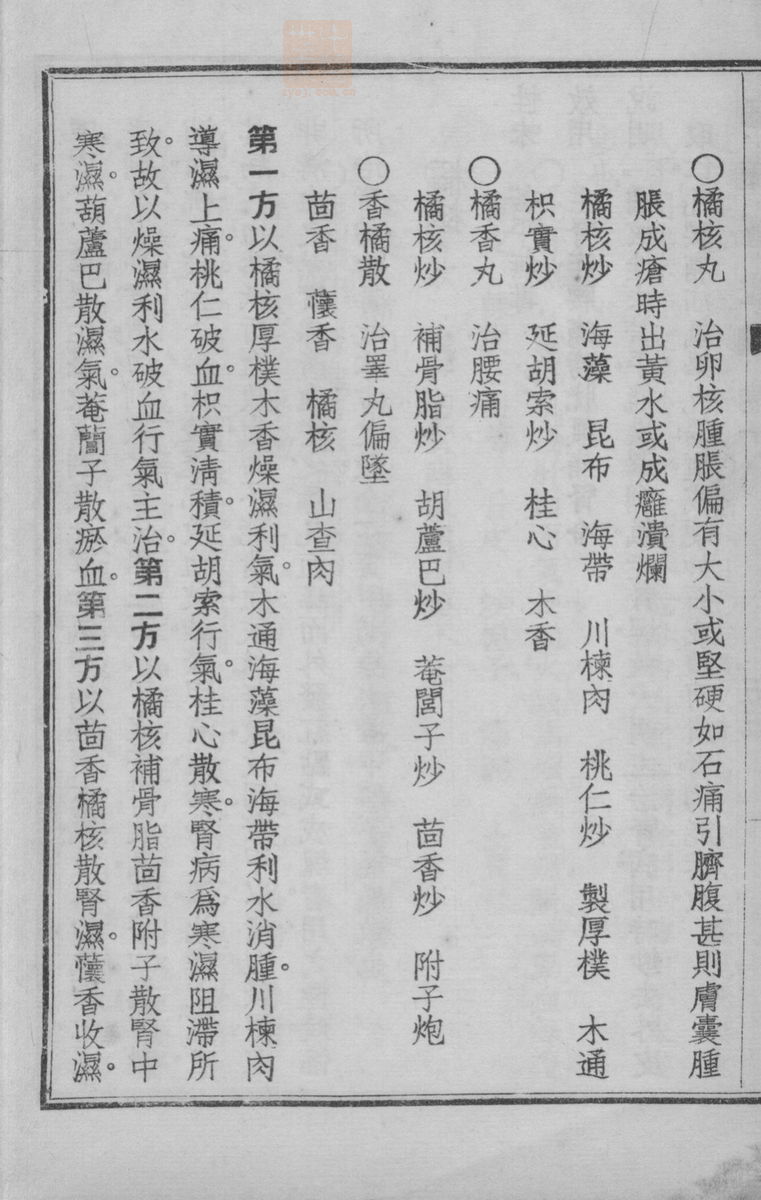 〇橘核丸　治卵核腫脹偏有大小或堅硬如石痛引臍腹甚則膚囊腫
脹成瘡時出黃水或成癰潰爛
橘核炒　海藻　昆布　海帶　川楝肉　桃仁炒　製厚樸　木通
枳實炒　延胡索炒　桂心　木香
〇橘香丸　治腰痛
橘核炒　補骨脂炒　胡蘆巴炒　菴閭子炒　茴香炒　附子炮
〇香橘散　治睪丸偏墜
茴香　蘹香　橘核　山查肉
第一方以橘核厚樸木香燥濕利氣。木通海藻昆布海帶利水消腫。川楝肉
導濕上痛。桃仁破血。枳實淸積。延胡索行氣。桂心散寒。腎病爲寒濕阻滯所
致。故以燥濕利水破血行氣主治。第二方以橘核補骨脂茴香附子散腎中
寒濕。葫蘆巴散濕氣。菴䕡子散瘀血。第三方以茴香橘核散腎濕。蘹香收濕。